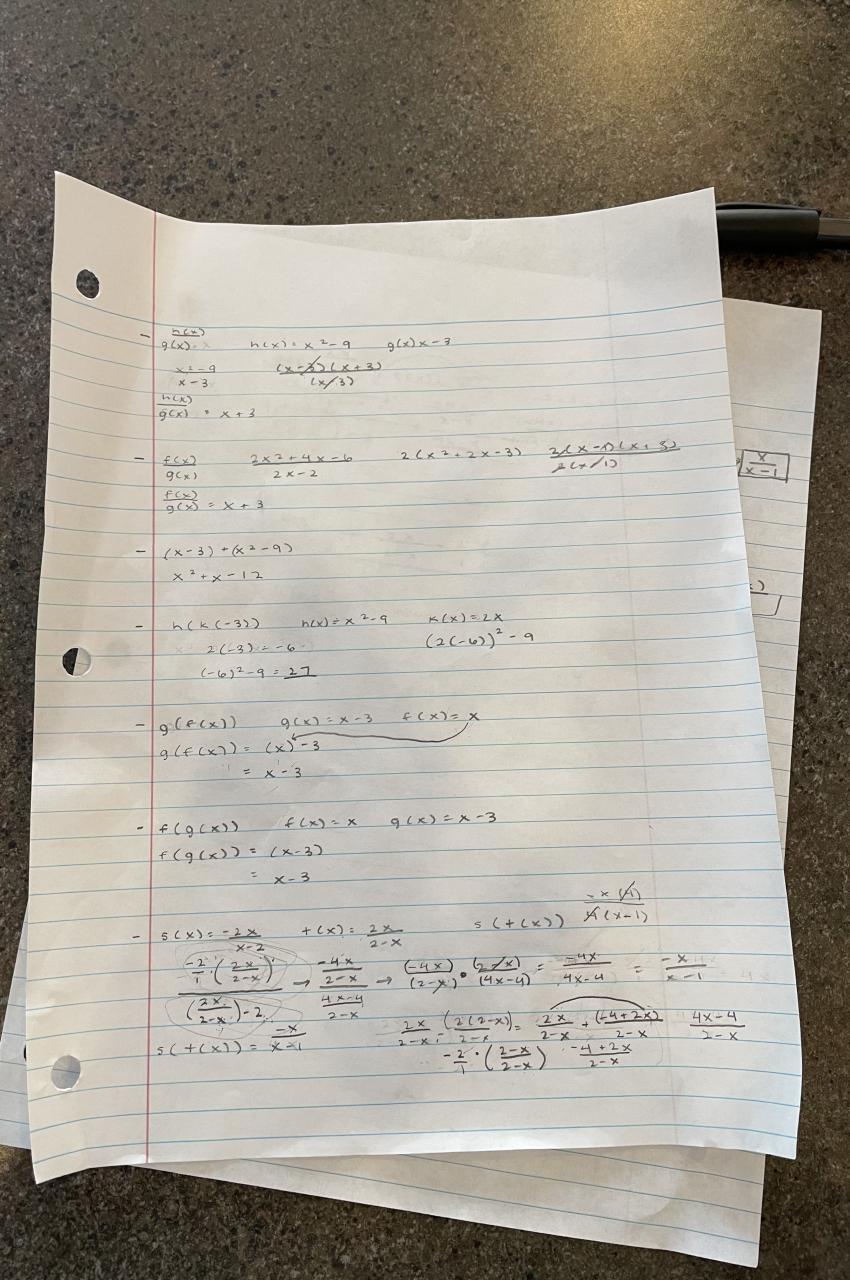 - h(x)/g(x) h(x) = x² - 9 g(x) x - 3
(x² - 9)/(x - 3) ((x - 3)(x + 3))/(x - 3)
h(x)/g(x) = x + 3
- f(x)/g(x) (2x² + 4x - 6)/(2x - 2) 2(x² + 2x - 3) (2(x - 1)(x + 3))/(2(x - 1))
f(x)/g(x) = x + 3
- (x - 3) + (x² - 9)
x² + x - 12
- h(k(-3)) h(x) = x² - 9 k(x) = 2x
2(-3) = -6 (2(-6))² - 9
(-6)² - 9 = 27
- g(f(x)) g(x) = x - 3 f(x) = x
g(f(x)) = (x) - 3
= x - 3
- f(g(x)) f(x) = x g(x) = x - 3
f(g(x)) = (x - 3)
= x - 3
- s(x) = -2x/(x - 2) t(x) = 2x/(2 - x) s(t(x)) (-x(4))/(4(x - 1))
(-2/1 · (2x/(2 - x)))/((2x/(2 - x)) - 2) → (-4x/(2 - x))/((4x - 4)/(2 - x)) → (-4x)/(2 - x) · (2 - x)/(4x - 4) = -4x/(4x - 4) = -x/(x - 1)
s(t(x)) = -x/(x - 1) 2x/(2 - x) - (2(2 - x))/(2 - x) = 2x/(2 - x) + (-4 + 2x)/(2 - x) (4x - 4)/(2 - x)
-2/1 · ((2 - x)/(2 - x)) (-4 + 2x)/(2 - x)
x/(x - 1)